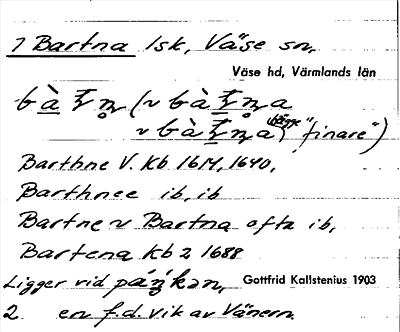 1 Bartna Isk, Väse sn,
Väse hd, Värmlands län
bàtn̥ (~ bàtn̥a
~ bàtn̥a) bägge "finare")
Barthne V. Kb 1614, 1640,
Barthnee ib, ib
Bartne ~ Bartna ofta ib,
Bartena Kb 2 1688
Ligger vid pánkən, Gottfrid Kallstenius 1903
2. en f.d. vik av Vänern.